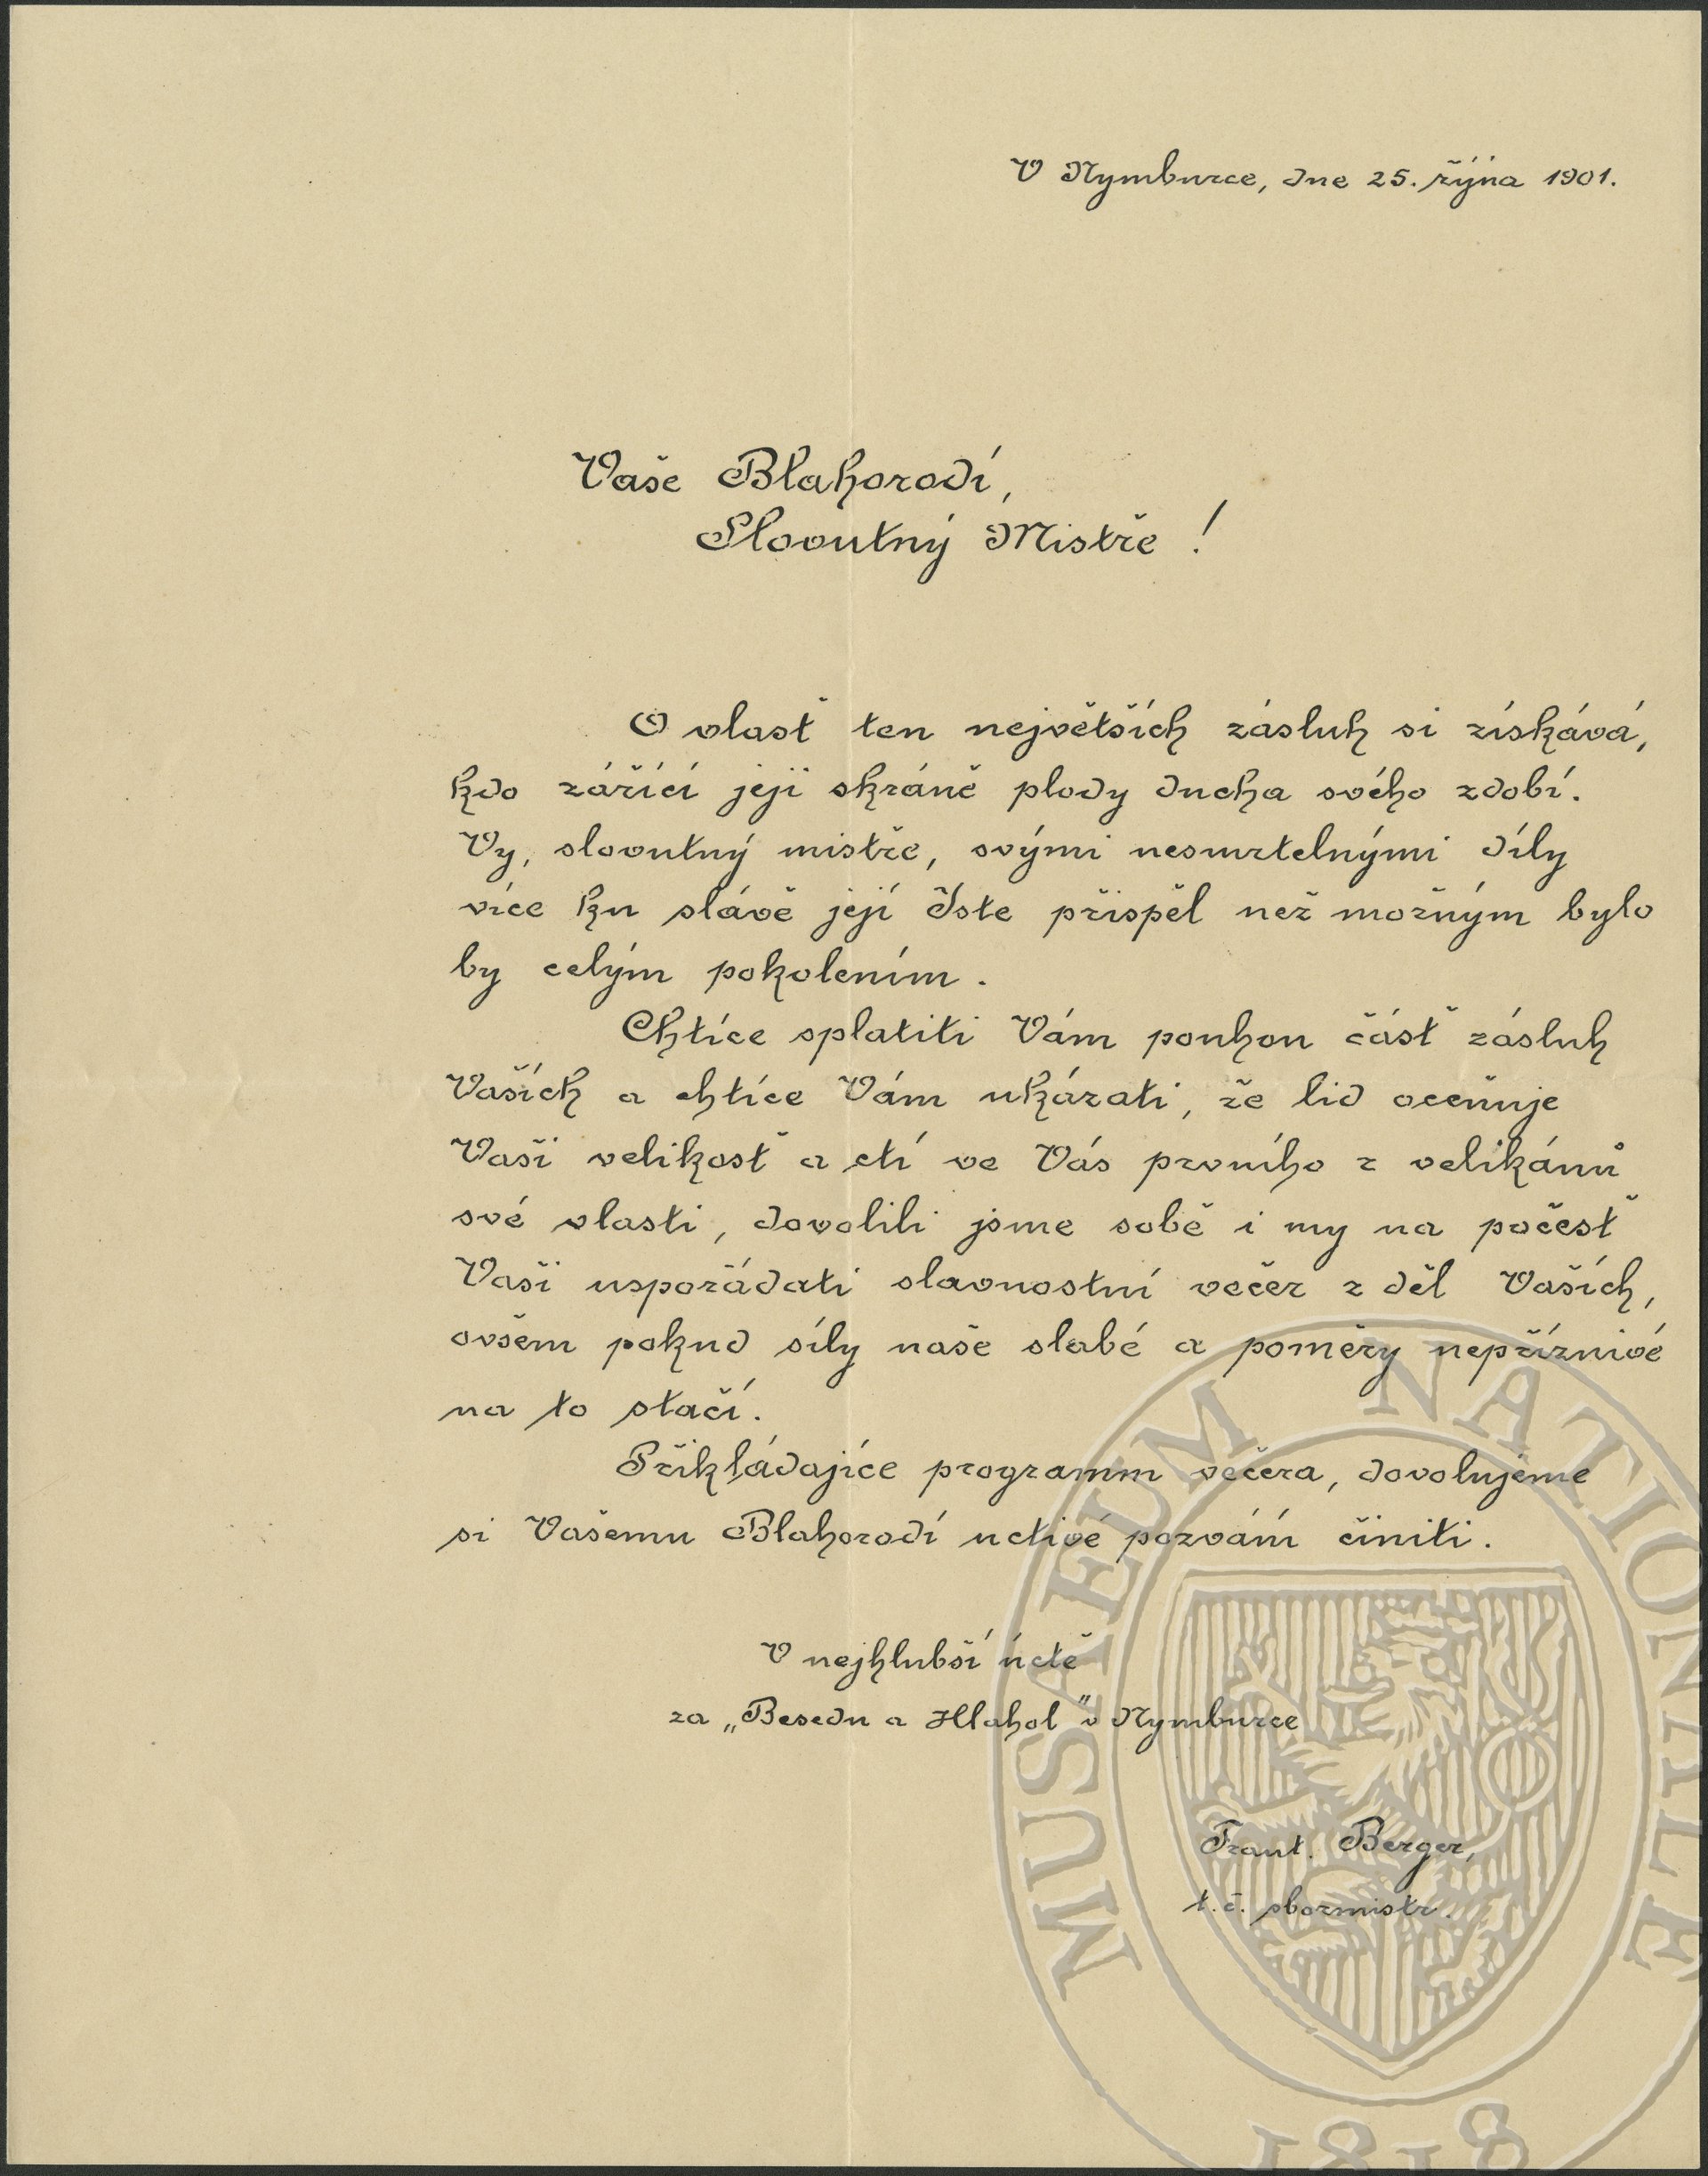 V Nymburce, dne 25. října 1901.
Vaše Blahorodí,
Slovutný Mistře !
O vlasť ten největších zásluh si získává,
kdo zářící její skráně plody ducha svého zdobí.
Vy, slovutný mistře, svými nesmrtelnými díly
více ku slávě její jste přispěl než možným bylo
by celým pokolením.
Chtíce splatiti Vám pouhou část zásluh
Vašich a chtíce Vám ukázati, že lid oceňuje
Vaši velikosť a ctí ve Vás prvního z velikánů
své vlasti, dovolili jsme sobě i my na počesť
Vaši uspořádati slavnostní večer z děl Vašich,
ovšem pokud síly naše slabé a poměry nepříznivé
na to stačí.
Přikládajíce programm večera, dovolujeme
si Vašemu Blahorodí uctivé pozvání činiti.
V nejhlubší úctě
za „Besedu a Hlahol" v Nymburce
Frant. Berger,
t. č. sbormistr.
MUSAEUM NATIONALE
1818